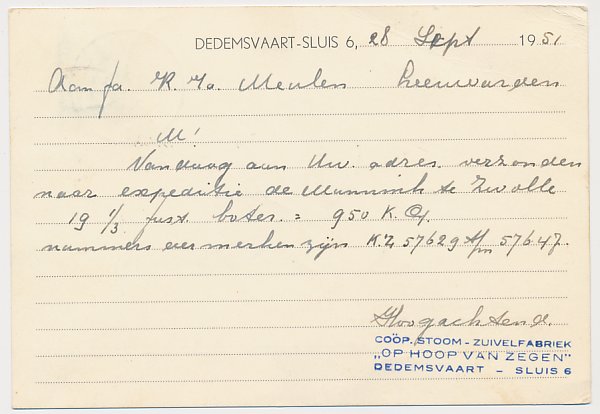 DEDEMSVAART-SLUIS 6, 28 Sept 1951
Aan fa. K. Ya. Meulen Leeuwarden
M!
Vandaag aan Uw. adres verzonden
naar expeditie de Munnink te Zwolle
19 1/3 fust boter = 950 K.G.
nummers en merken zijn KZ 57629 t/m 57647.
Hoogachtend.
COÖP. STOOM - ZUIVELFABRIEK
„OP HOOP VAN ZEGEN"
DEDEMSVAART - SLUIS 6